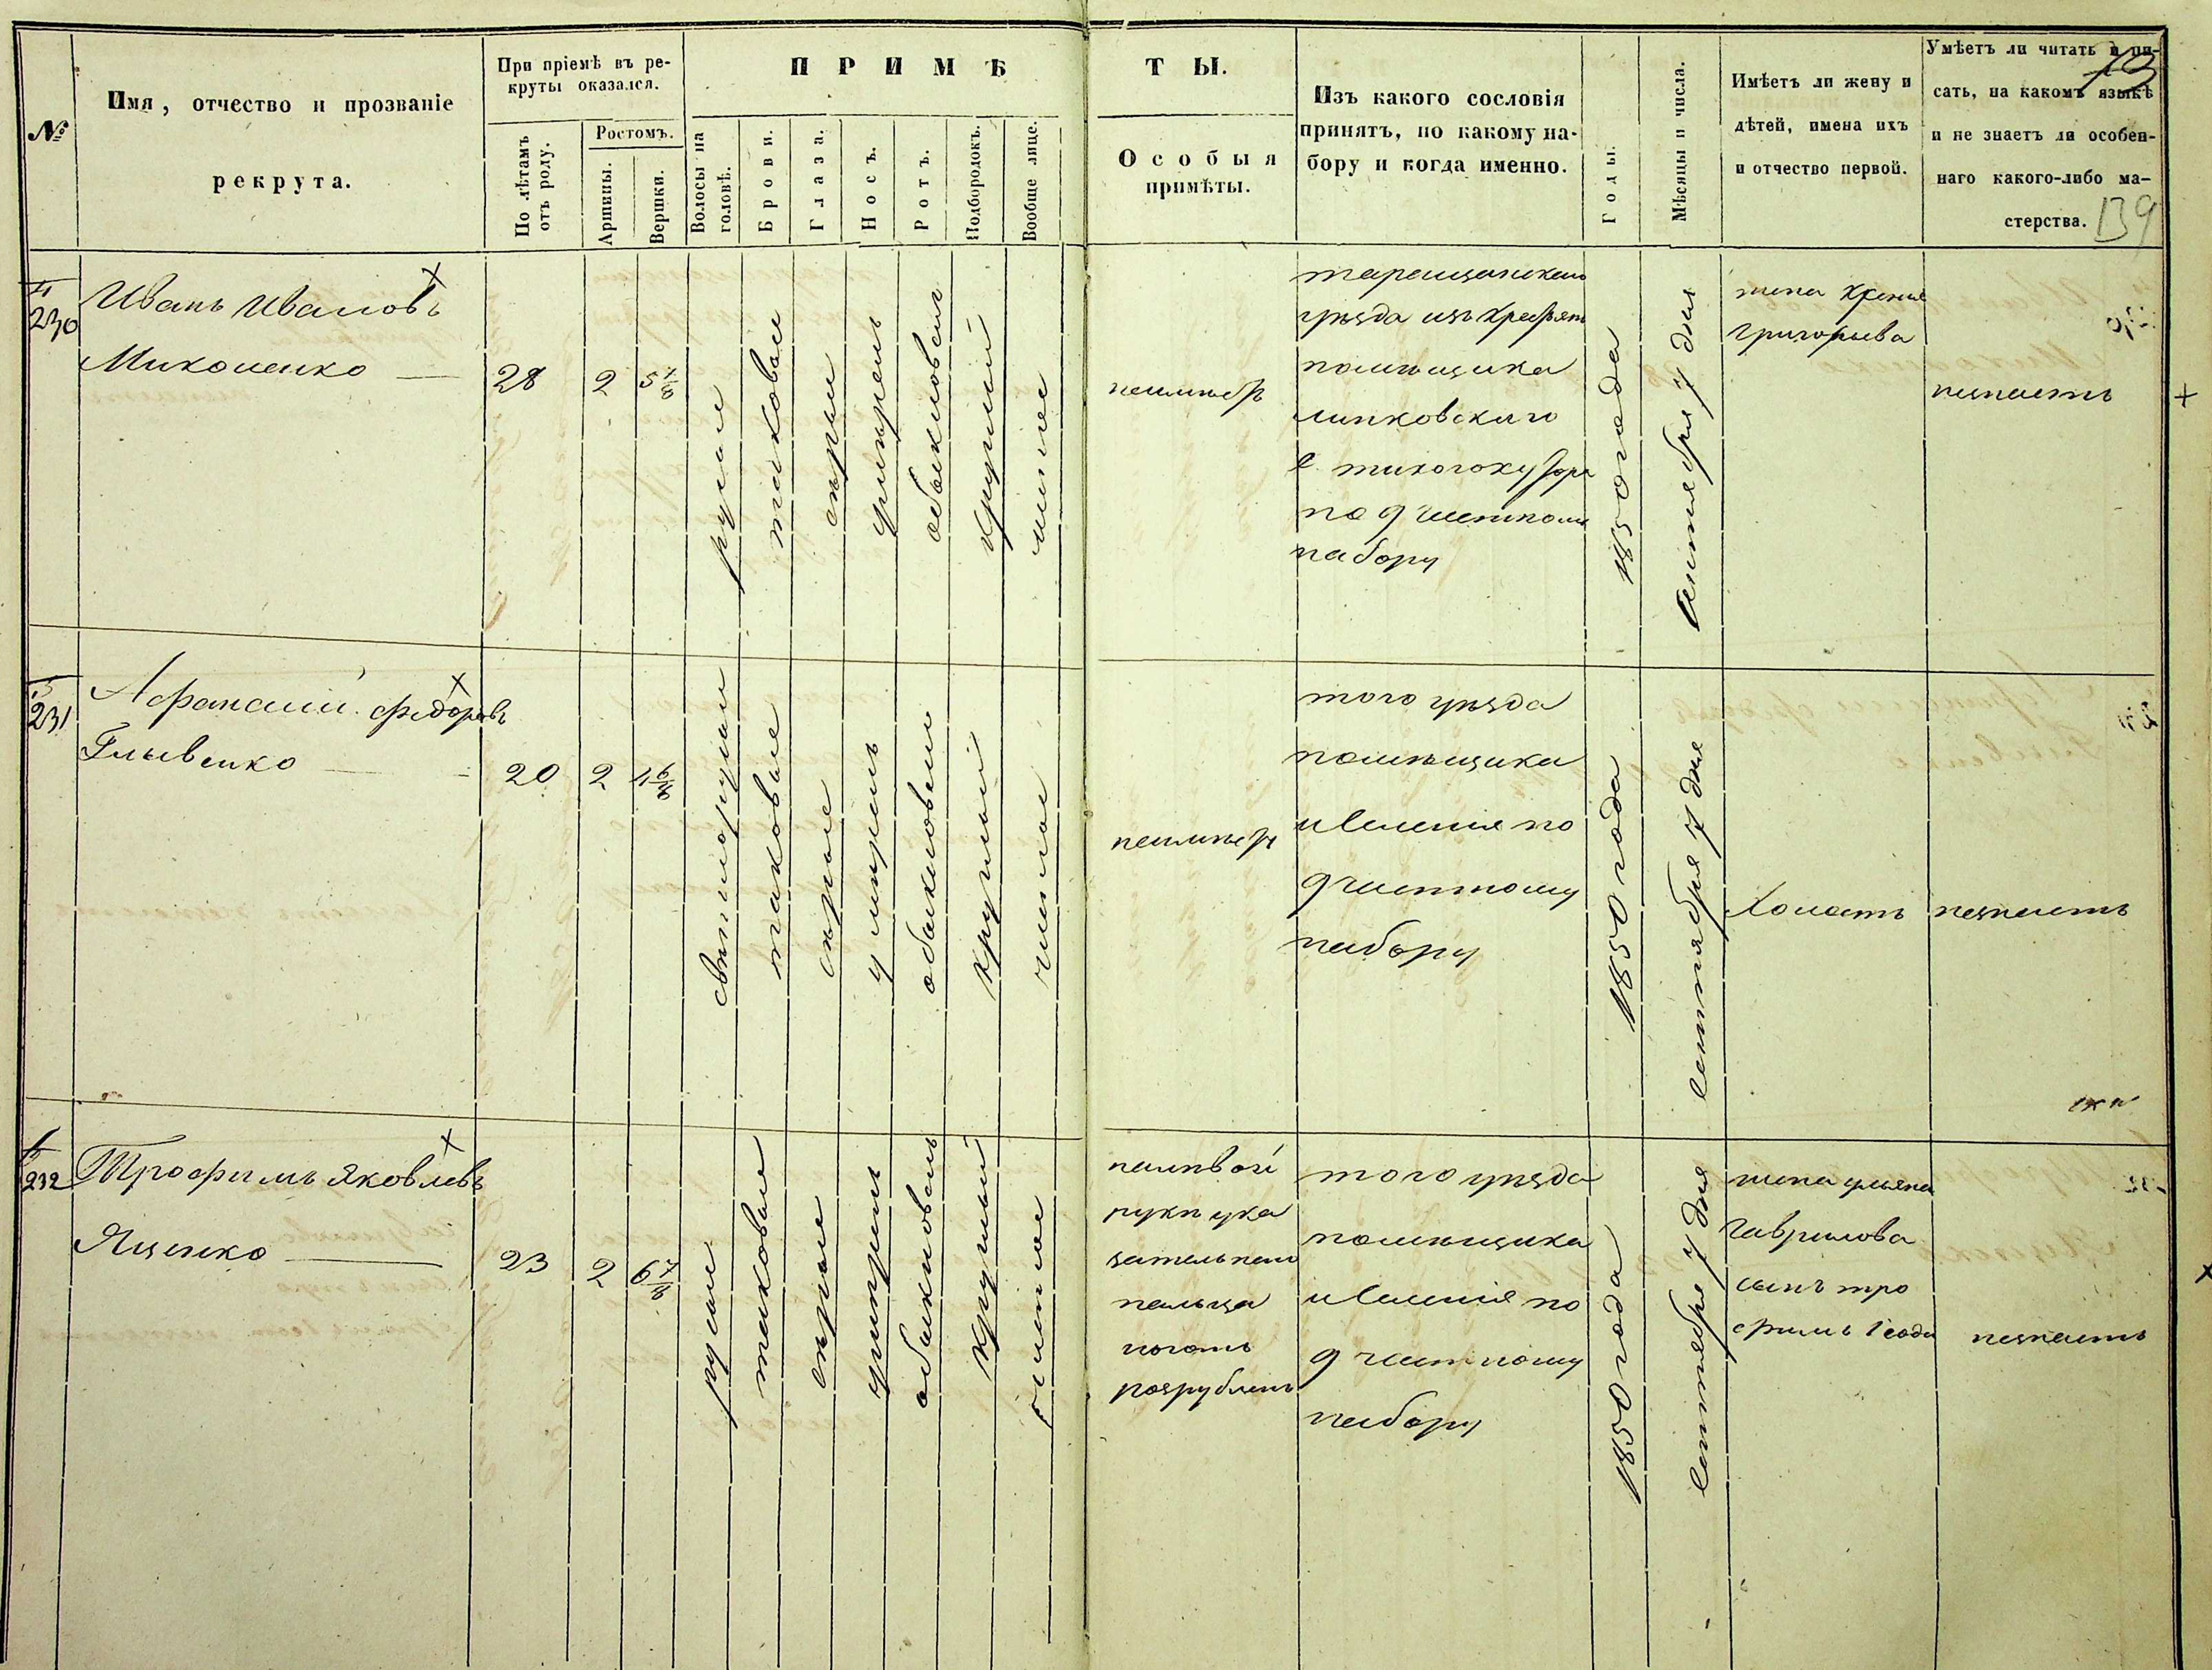 73
139
№
Имя, отчество и прозваніе
рекрута.
При пріемѣ въ ре-
круты оказался.
По лѣтамъ
отъ роду.
Ростомъ.
Аршины.
Вершки.
ПРИМѢ
ТЫ.
Волосы на
головѣ.
Брови.
Глаза.
Носъ.
Ротъ.
Подбородокъ.
Вообще лице.
Особыя
примѣты.
Изъ какого сословія
принятъ, по какому на-
бору и когда именно.
Годы.
Мѣсяцы и числа.
Имѣетъ ли жену и
дѣтей, имена ихъ
и отчество первой.
Умѣетъ ли читать и пи-
сать, на какомъ языкѣ
и не знаетъ ли особен-
наго какого-либо ма-
стерства.
230
Иванъ Ивановъ
Миколенко
28
2
5 7/8
русые
таковые
сѣрые
умѣренъ
обыкновенъ
круглый
чистое
неимѣетъ
таращанскаго
уѣзда изъ крестьян
помѣщика
липковскаго
с. тихогохутора
по 9 частному
набору
1850 года
сентября 7 дня
жена
григорьева
незнаетъ
231
Афанасий федоровъ
Глывенко
20
2
4 6/8
свѣтлорусые
таковые
сѣрые
умѣренъ
обыкновенъ
круглый
чистое
неимѣетъ
того уѣзда
помѣщика
и селения по
9 частному
набору
1850 года
сентября 7 дня
Холостъ
незнаетъ
232
Трофимъ Яковлевъ
Яценко
23
2
6 7/8
русые
таковые
сѣрые
умѣренъ
обыкновенъ
круглый
чистое
налѣвой
руки ука
зательнаго
пальца
ноготь
розрубленъ
того уѣзда
помѣщика
и селения по
9 частному
набору
1850 года
сентября 7 дня
жена ульяна
гаврилова
сынъ тро
фимъ 1 года
незнаетъ